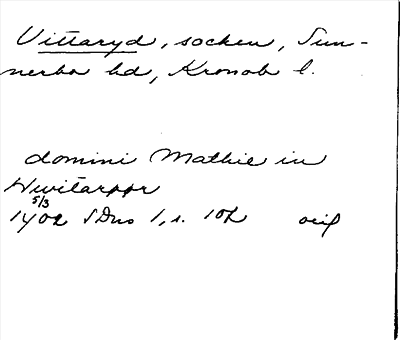 Vittaryd, socken, Sun-
nerbo hd, Kronob l.
domini Mathie in
Hwitarypr
5/3
1402 SDns 1, s. 102 orig